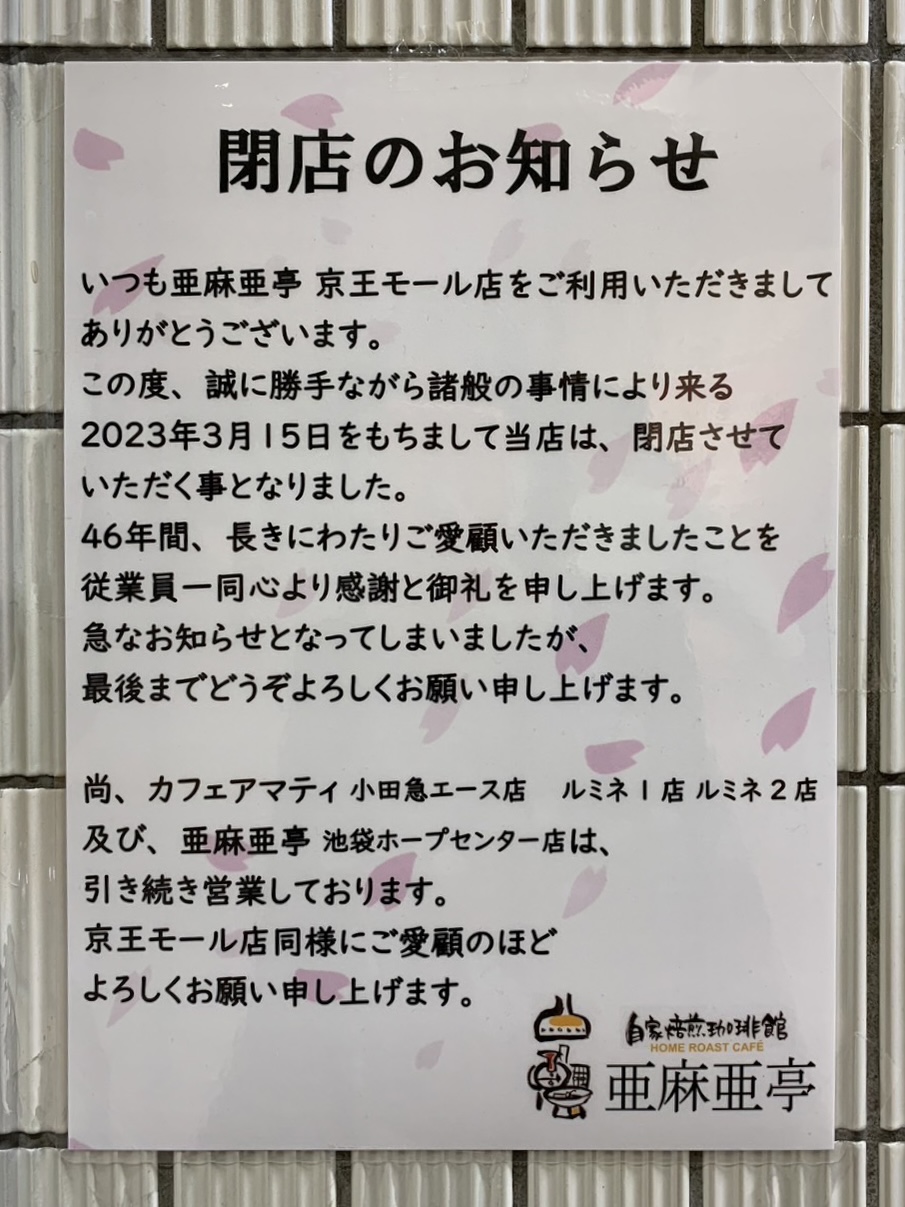 閉店のお知らせ
いつも亜麻亜亭 京王モール店をご利用いただきまして
ありがとうございます。
この度、誠に勝手ながら諸般の事情により来る
2023年3月15日をもちまして当店は、閉店させて
いただく事となりました。
46年間、長きにわたりご愛顧いただきましたことを
従業員一同心より感謝と御礼を申し上げます。
急なお知らせとなってしまいましたが、
最後までどうぞよろしくお願い申し上げます。
尚、カフェアマティ 小田急エース店 ルミネ1店 ルミネ2店
及び、亜麻亜亭 池袋ホープセンター店は、
引き続き営業しております。
京王モール店同様にご愛顧のほど
よろしくお願い申し上げます。
自家焙煎珈琲館
HOME ROAST CAFÉ
亜麻亜亭